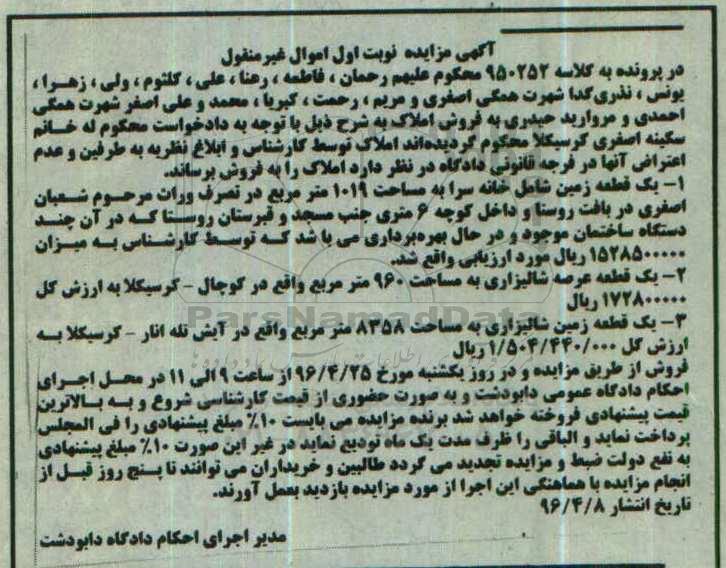 آگهی مزایده نوبت اول اموال غیرمنقول
در پرونده به کلاسه ۹۵۰۲۵۲ محکوم علیهم رحمان ، فاطمه ، رعنا ، علی ، کلثوم ، ولی ، زهرا ،
یونس ، نذری‌گدا شهرت همگی اصغری و مریم ، رحمت ، کبریا ، محمد و علی اصغر شهرت همگی
احمدی و مروارید حیدری به فروش املاک به شرح ذیل با توجه به دادخواست محکوم له خانم
سکینه اصغری کرسیکلا محکوم گردیده‌اند املاک توسط کارشناس و ابلاغ نظریه به طرفین و عدم
اعتراض آنها در فرجه قانونی دادگاه در نظر دارد املاک را به فروش برساند.
۱- یک قطعه زمین شامل خانه سرا به مساحت ۱۰۱۹ متر مربع در تصرف وراث مرحوم شعبان
اصغری در بافت روستا و داخل کوچه ۶ متری جنب مسجد و قبرستان روستا که در آن چند
دستگاه ساختمان موجود و در حال بهره‌برداری می با شد که توسط کارشناس به میزان
۱۵۲۸۵۰۰۰۰۰ ریال مورد ارزیابی واقع شد.
۲- یک قطعه عرصه شالیزاری به مساحت ۹۶۰ متر مربع واقع در کوچال - کرسیکلا به ارزش کل
۱۷۲۸۰۰۰۰۰ ریال
۳- یک قطعه زمین شالیزاری به مساحت ۸۳۵۸ متر مربع واقع در آیش تله انار - کرسیکلا به
ارزش کل ۱/۵۰۴/۴۴۰/۰۰۰ ریال
فروش از طریق مزایده و در روز یکشنبه مورخ ۹۶/۴/۲۵ از ساعت ۹ الی ۱۱ در محل اجرای
احکام دادگاه عمومی دابودشت و به صورت حضوری از قیمت کارشناسی شروع و به بالاترین
قیمت پیشنهادی فروخته خواهد شد برنده مزایده می بایست ۱۰٪ مبلغ پیشنهادی را فی المجلس
پرداخت نماید و الباقی را ظرف مدت یک ماه تودیع نماید در غیر این صورت ۱۰٪ مبلغ پیشنهادی
به نفع دولت ضبط و مزایده تجدید می گردد طالبین و خریداران می توانند تا پنج روز قبل از
انجام مزایده با هماهنگی این اجرا از مورد مزایده بازدید بعمل آورند.
تاریخ انتشار ۹۶/۴/۸
مدیر اجرای احکام دادگاه دابودشت
ParsNamadData